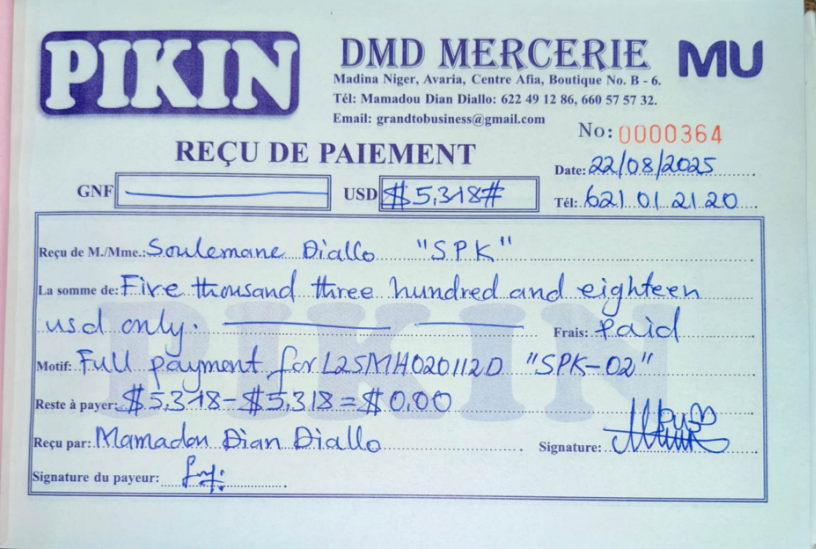 PIKIN
DMD MERCERIE
MU
Madina Niger, Avaria, Centre Afia, Boutique No. B - 6.
Tél: Mamadou Dian Diallo: 622 49 12 86, 660 57 57 32.
Email: grandtobusiness@gmail.com
No: 0000364
REÇU DE PAIEMENT
Date: 22/08/2025
GNF
USD #$5,318#
Tél: 621 01 21 20
Reçu de M./Mme.: Soulemane Diallo "SPK"
La somme de: Five thousand three hundred and eighteen
usd only.
Frais: paid
Motif: Full payment for L25MH020112D "SPK-02"
Reste à payer: $5,318-$5,318=$0,00
Reçu par: Mamadou Dian Diallo
Signature:
Signature du payeur:
PIKIN